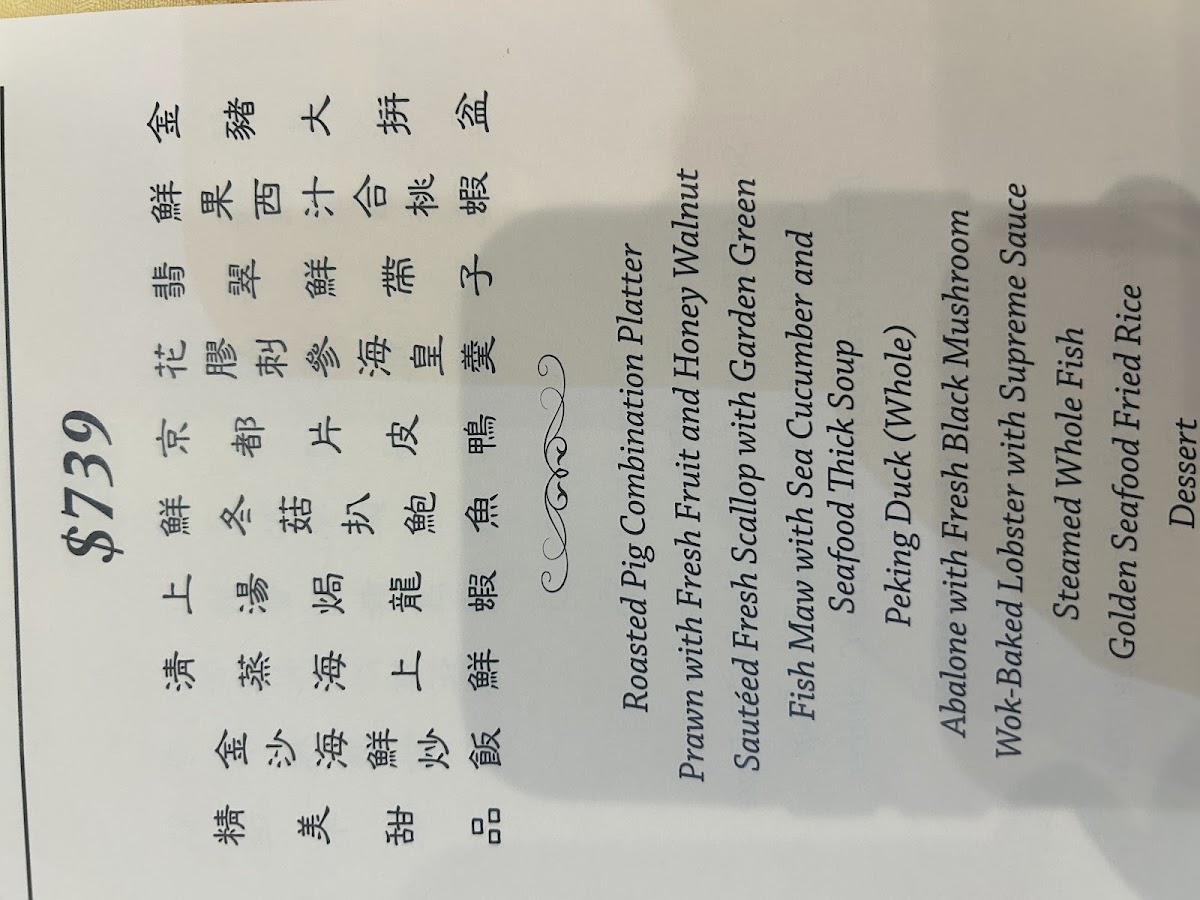 $739
金豬大拼盆
鮮果西汁合桃蝦
翡翠鮮帶子
花膠刺參海皇羹
京都片皮鴨
鮮冬菇扒鮑魚
上湯焗龍蝦
清蒸海上鮮
金沙海鮮炒飯
精美甜品
Roasted Pig Combination Platter
Prawn with Fresh Fruit and Honey Walnut
Sautéed Fresh Scallop with Garden Green
Fish Maw with Sea Cucumber and
Seafood Thick Soup
Peking Duck (Whole)
Abalone with Fresh Black Mushroom
Wok-Baked Lobster with Supreme Sauce
Steamed Whole Fish
Golden Seafood Fried Rice
Dessert